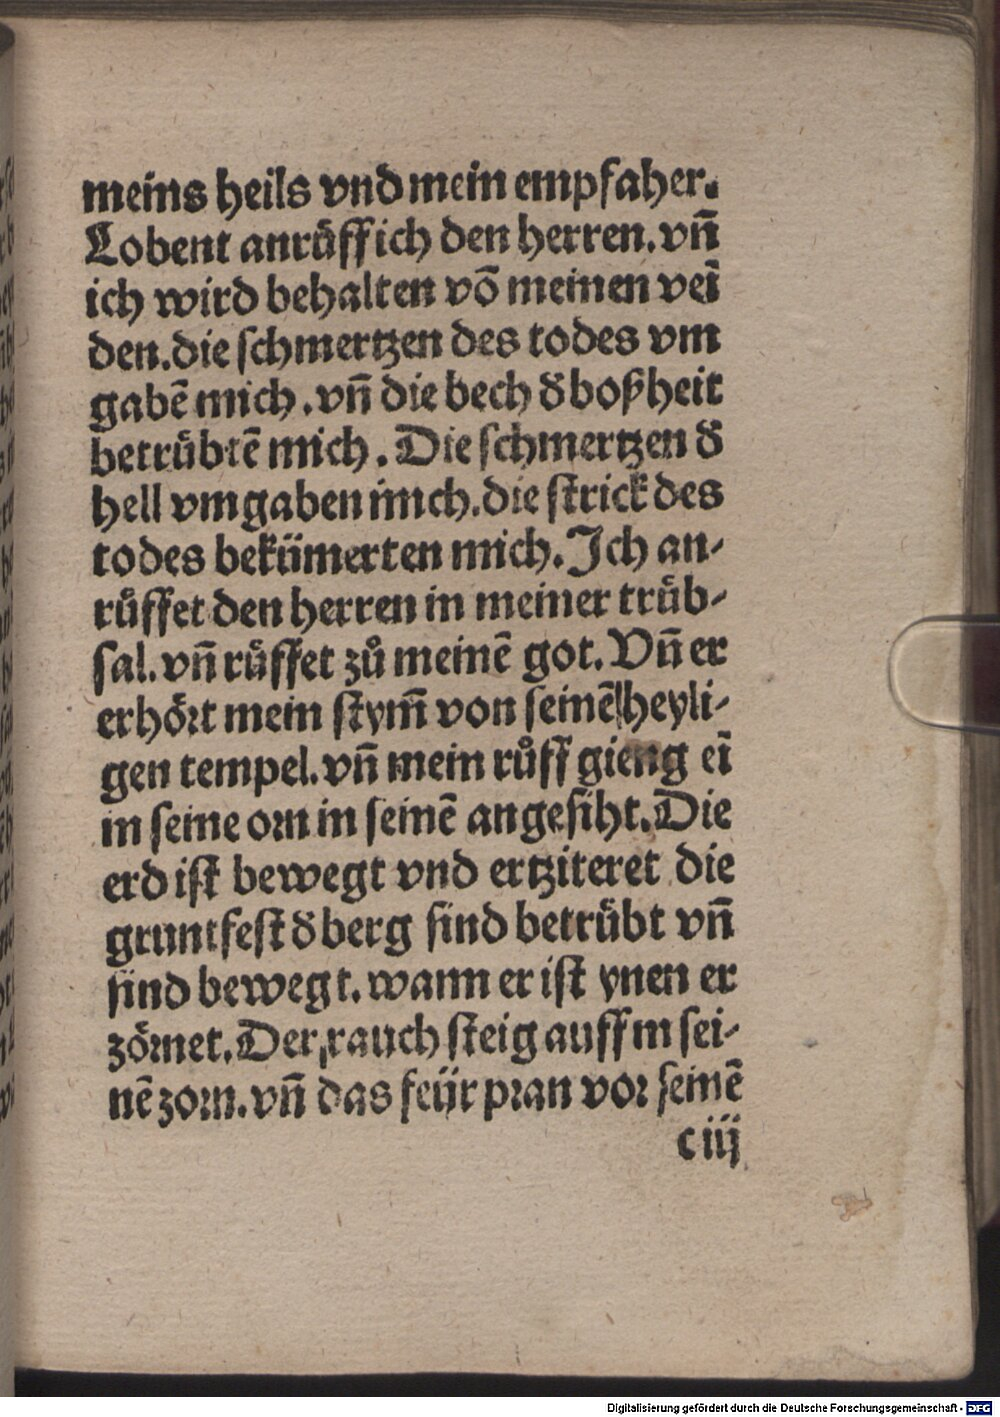 meins heils vnd mein empfaher.
Lobent anrůff ich den herren. vñ
ich wird behalten võ meinen vei
den. die schmertzen des todes vm
gabē mich. vñ die bech đ boßheit
betrübtē mich. Die schmertzen đ
hell vmgaben mich. die strick des
todes bekümerten mich. Ich an-
růffet den herren in meiner trüb-
sal. vñ růffet zů meinē got. Vñ er
erhört mein stym̄ von seinē heyli-
gen tempel. vñ mein růff gieng eī
in seine orn in seinē angesiht. Die
erd ist bewegt vnd ertziteret die
gruntfest đ berg sind betrübt vñ
sind bewegt. wann er ist ynen er
zörnet. Der rauch steig auff in sei-
nē zorn. vñ das feür pran vor seinē
c iij
Digitalisierung gefördert durch die Deutsche Forschungsgemeinschaft - DFG